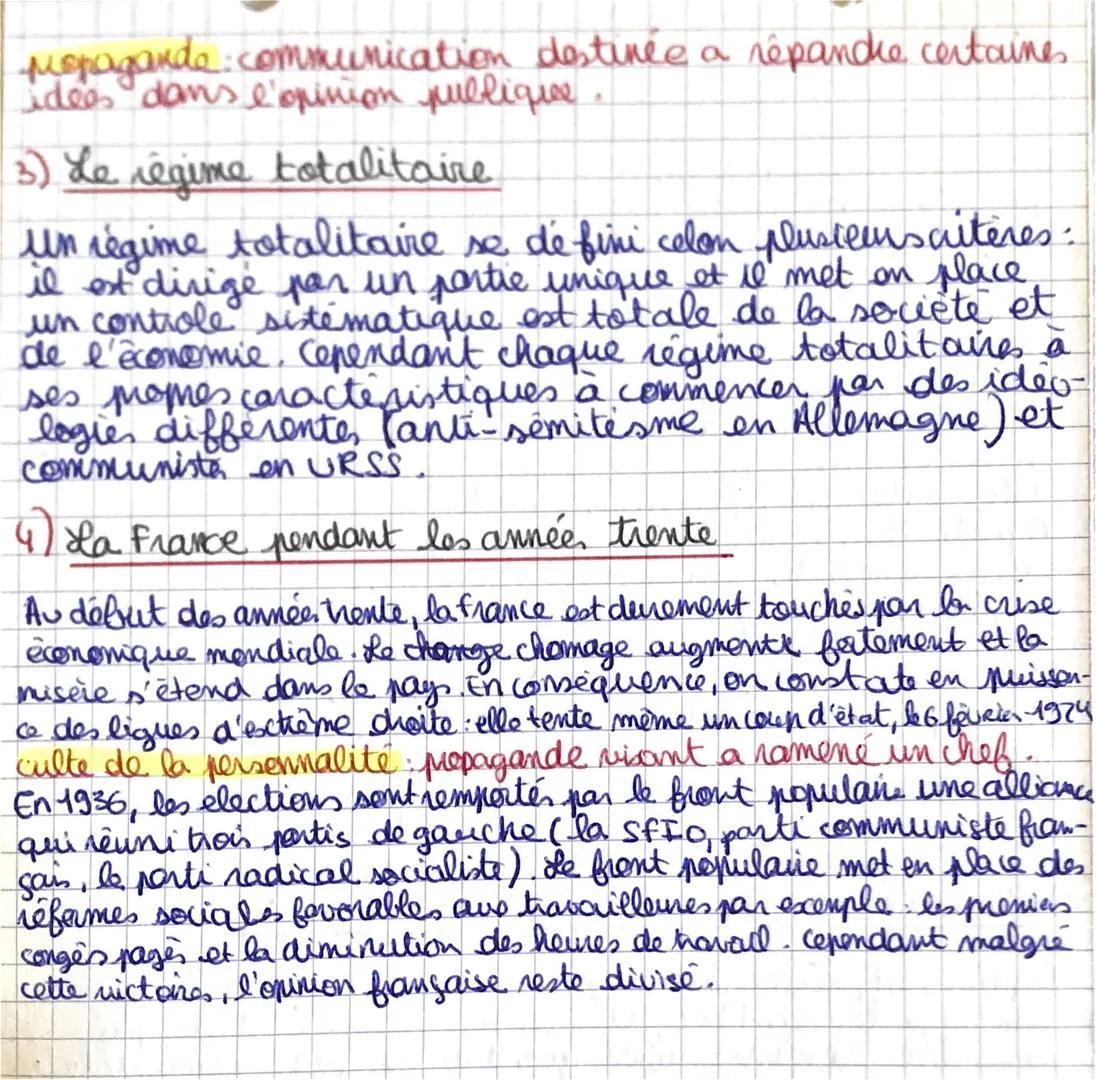 propagande : communication destinée a répandre certaines
idées dans l'opinion publique.
3) Le régime totalitaire
Un régime totalitaire se défini celon plusieurs critères :
il est dirigé par un partie unique et il met en place
un controle sistématique est totale de la société et
de l'économie. Cependant chaque régime totalitaires à
ses propres caractéristiques à commencer par des idéo-
logies différentes (anti-sémitésme en Allemagne) et
communiste en URSS.
4) La France pendant les année trente
Au début des année trente, la france est durement touchés par la crise
économique mondiale. Le chomage augmente fortement et la
misère s'étend dans le pays. En conséquence, on constate en puissan-
ce des ligues d'extrême droite : elle tente même un coup d'état, le 6 février 1924
culte de la personnalité : propagande visant a ramené un chef.
En 1936, les elections sont remportés par le front populaire une alliance
qui réuni trois partis de gauche (la SFIO, parti communiste fran-
çais, le parti radical socialiste). Le front populaire met en place des
réformes sociales favorables aux travailleurs par exemple : les premiers
congés payés et la diminution des heures de travail. Cependant malgré
cette victoire, l'opinion française reste divisé.